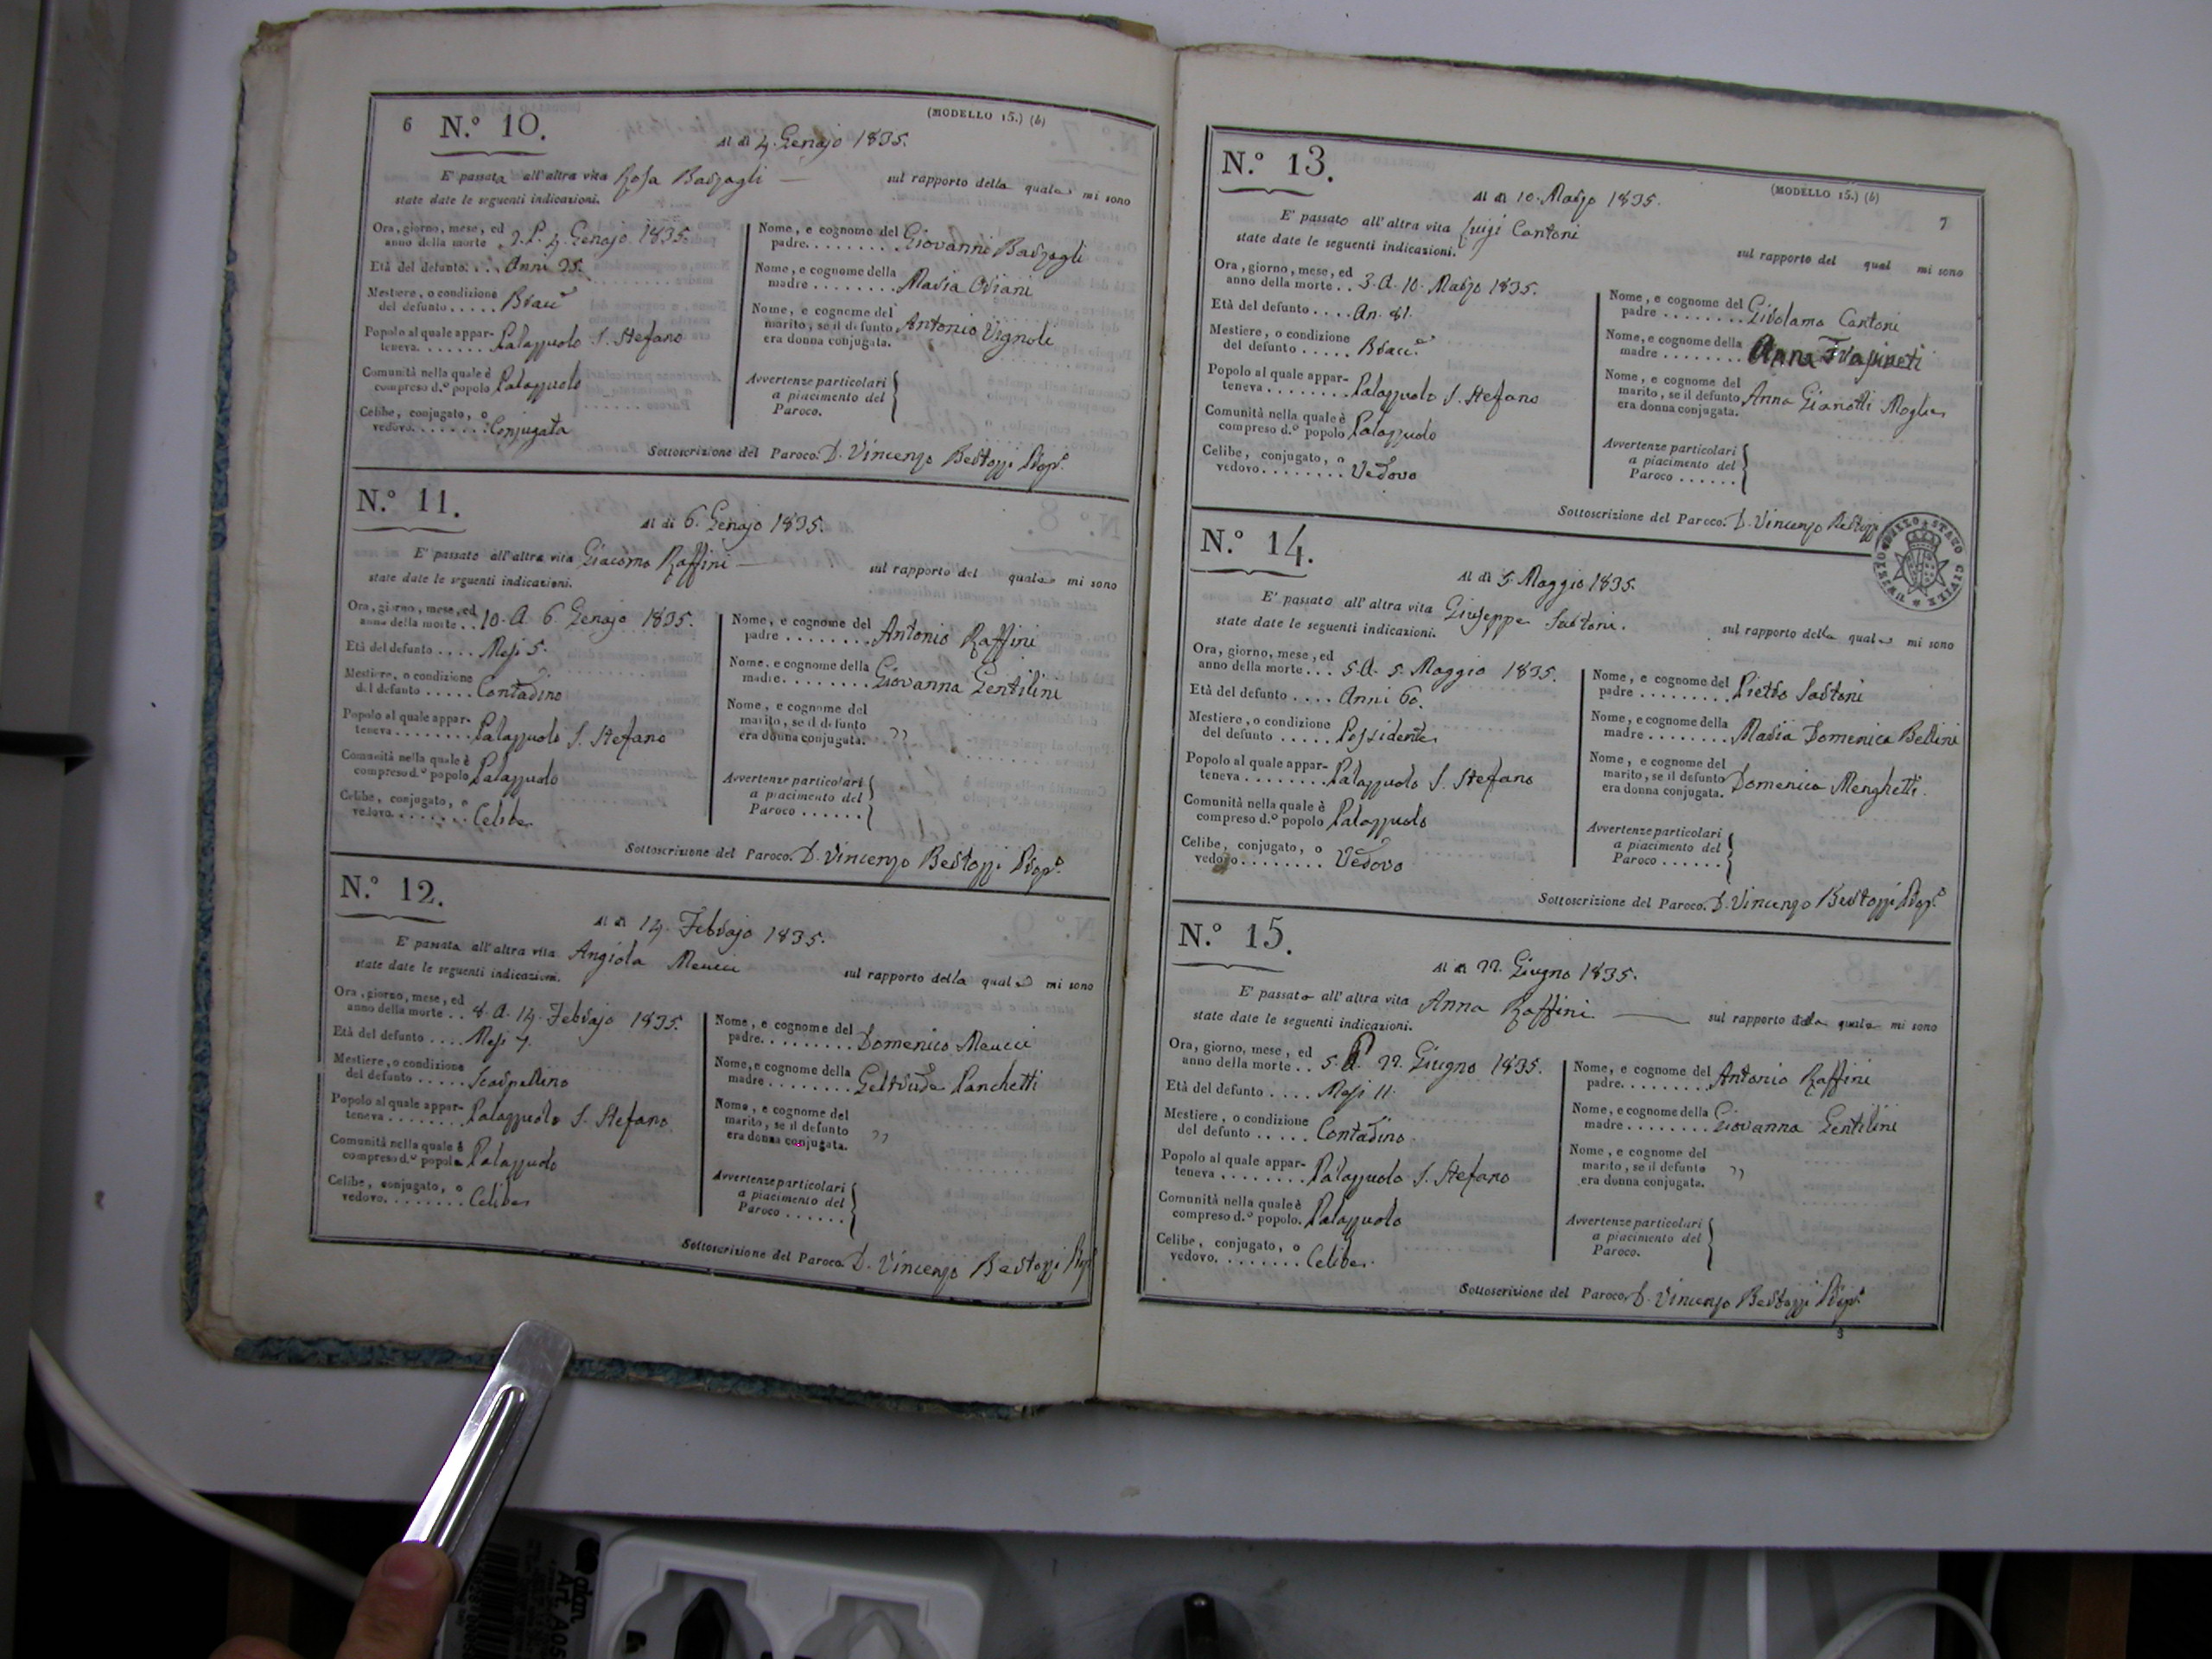 6 N.º 10. (MODELLO 15.) (b)
Al dì 4. Genajo 1835.
E' passata all'altra vita Rosa Barzagli — sul rapporto della quale mi sono
state date le seguenti indicazioni.
Ora, giorno, mese, ed
anno della morte 2. P. 4. Genajo 1835.
Età del defunto. . . . Anni 35.
Mestiere, o condizione
del defunto . . . . . Bracc.e
Popolo al quale appar-
teneva. . . . . . . Palazzuolo S. Stefano
Comunità nella quale è
compreso d.º popolo Palazzuolo
Celibe, conjugato, o
vedovo. . . . . . . . Conjugata
Nome, e cognome del
padre. . . . . . . . Giovanni Barzagli
Nome, e cognome della
madre . . . . . . . . Maria Oriani
Nome, e cognome del
marito, se il defunto
era donna conjugata. Antonio Vignoli
Avvertenze particolari
a piacimento del
Paroco.
Sottoscrizione del Paroco. D. Vincenzo Bertozzi Prop.º
N.º 11.
Al dì 6. Genajo 1835.
E' passato all'altra vita Giacomo Raffini — sul rapporto del quale mi sono
state date le seguenti indicazioni.
Ora, giorno, mese, ed
anno della morte . . 10. A. 6. Genajo 1835.
Età del defunto . . . . Mesi 5.
Mestiere, o condizione
del defunto . . . . . Contadino
Popolo al quale appar-
teneva . . . . . . . . Palazzuolo S. Stefano
Comunità nella quale è
compreso d.º popolo Palazzuolo
Celibe, conjugato, o
vedovo. . . . . . . . Celibe
Nome, e cognome del
padre . . . . . . . . Antonio Raffini
Nome, e cognome della
madre. . . . . . . . Giovanna Gentilini
Nome, e cognome del
marito, se il defunto
era donna conjugata. ??
Avvertenze particolari
a piacimento del
Paroco . . . . . .
Sottoscrizione del Paroco. D. Vincenzo Bertozzi Prop.º
N.º 12.
Al dì 14. Febrajo 1835.
E' passata all'altra vita Angiola Meucci sul rapporto della quale mi sono
state date le seguenti indicazioni.
Ora, giorno, mese, ed
anno della morte . . 8. A. 14. Febrajo 1835.
Età del defunto . . . . Mesi 7.
Mestiere, o condizione
del defunto . . . . . Scarpellino
Popolo al quale appar-
teneva . . . . . . . . Palazzuolo S. Stefano
Comunità nella quale è
compreso d.º popolo Palazzuolo
Celibe, conjugato, o
vedovo. . . . . . . . Celibe
Nome, e cognome del
padre. . . . . . . . . Domenico Meucci
Nome, e cognome della
madre . . . . . . . . Geltrude Panchetti
Nome, e cognome del
marito, se il defunto
era donna conjugata. ??
Avvertenze particolari
a piacimento del
Paroco . . . . . .
Sottoscrizione del Paroco. D. Vincenzo Bertozzi Prop.º
N.º 13. (MODELLO 15.) (b) 7
Al dì 10. Marzo 1835.
E' passato all'altra vita Luigi Cantoni sul rapporto del qual mi sono
state date le seguenti indicazioni.
Ora, giorno, mese, ed
anno della morte . . 3. A. 10. Marzo 1835.
Età del defunto . . . . An. 81.
Mestiere, o condizione
del defunto . . . . . Bracc.e
Popolo al quale appar-
teneva . . . . . . . . Palazzuolo S. Stefano
Comunità nella quale è
compreso d.º popolo Palazzuolo
Celibe, conjugato, o
vedovo . . . . . . . . Vedovo
Nome, e cognome del
padre . . . . . . . . Girolamo Cantoni
Nome, e cognome della
madre . . . . . . . . Anna
Nome, e cognome del
marito, se il defunto
era donna conjugata. Anna Gianotti Moglie
Avvertenze particolari
a piacimento del
Paroco . . . . . .
Sottoscrizione del Paroco. D. Vincenzo Bertozzi
ARCHIVIO DELLO STATO CIVILE
N.º 14.
Al dì 5. Maggio 1835.
E' passato all'altra vita Giuseppe Sartoni. sul rapporto della quale mi sono
state date le seguenti indicazioni.
Ora, giorno, mese, ed
anno della morte . . . 5. A. 5. Maggio 1835.
Età del defunto . . . . Anni 60.
Mestiere, o condizione
del defunto . . . . . Possidente
Popolo al quale appar-
teneva . . . . . . . . Palazzuolo S. Stefano
Comunità nella quale è
compreso d.º popolo Palazzuolo
Celibe, conjugato, o
vedovo . . . . . . . . Vedovo
Nome, e cognome del
padre . . . . . . . . Pietro Sartoni
Nome, e cognome della
madre . . . . . . . . Maria Domenica Bellini
Nome, e cognome del
marito, se il defunto
era donna conjugata. Domenica Menghetti.
Avvertenze particolari
a piacimento del
Paroco . . . . . .
Sottoscrizione del Paroco. D. Vincenzo Bertozzi Prop.º
N.º 15.
Al dì 22. Giugno 1835.
E' passato all'altra vita Anna Raffini — sul rapporto della quale mi sono
state date le seguenti indicazioni.
Ora, giorno, mese, ed
anno della morte . . 5. P. 22. Giugno 1835.
Età del defunto . . . . Mesi 11.
Mestiere, o condizione
del defunto . . . . . Contadino.
Popolo al quale appar-
teneva . . . . . . . . Palazzuolo S. Stefano
Comunità nella quale è
compreso d.º popolo. Palazzuolo
Celibe, conjugato, o
vedovo. . . . . . . . Celibe.
Nome, e cognome del
padre. . . . . . . . . Antonio Raffini
Nome, e cognome della
madre . . . . . . . . Giovanna Gentilini
Nome, e cognome del
marito, se il defunto
era donna conjugata. ??
Avvertenze particolari
a piacimento del
Paroco.
Sottoscrizione del Paroco. D. Vincenzo Bertozzi Prop.º
3
adam
Art. A05